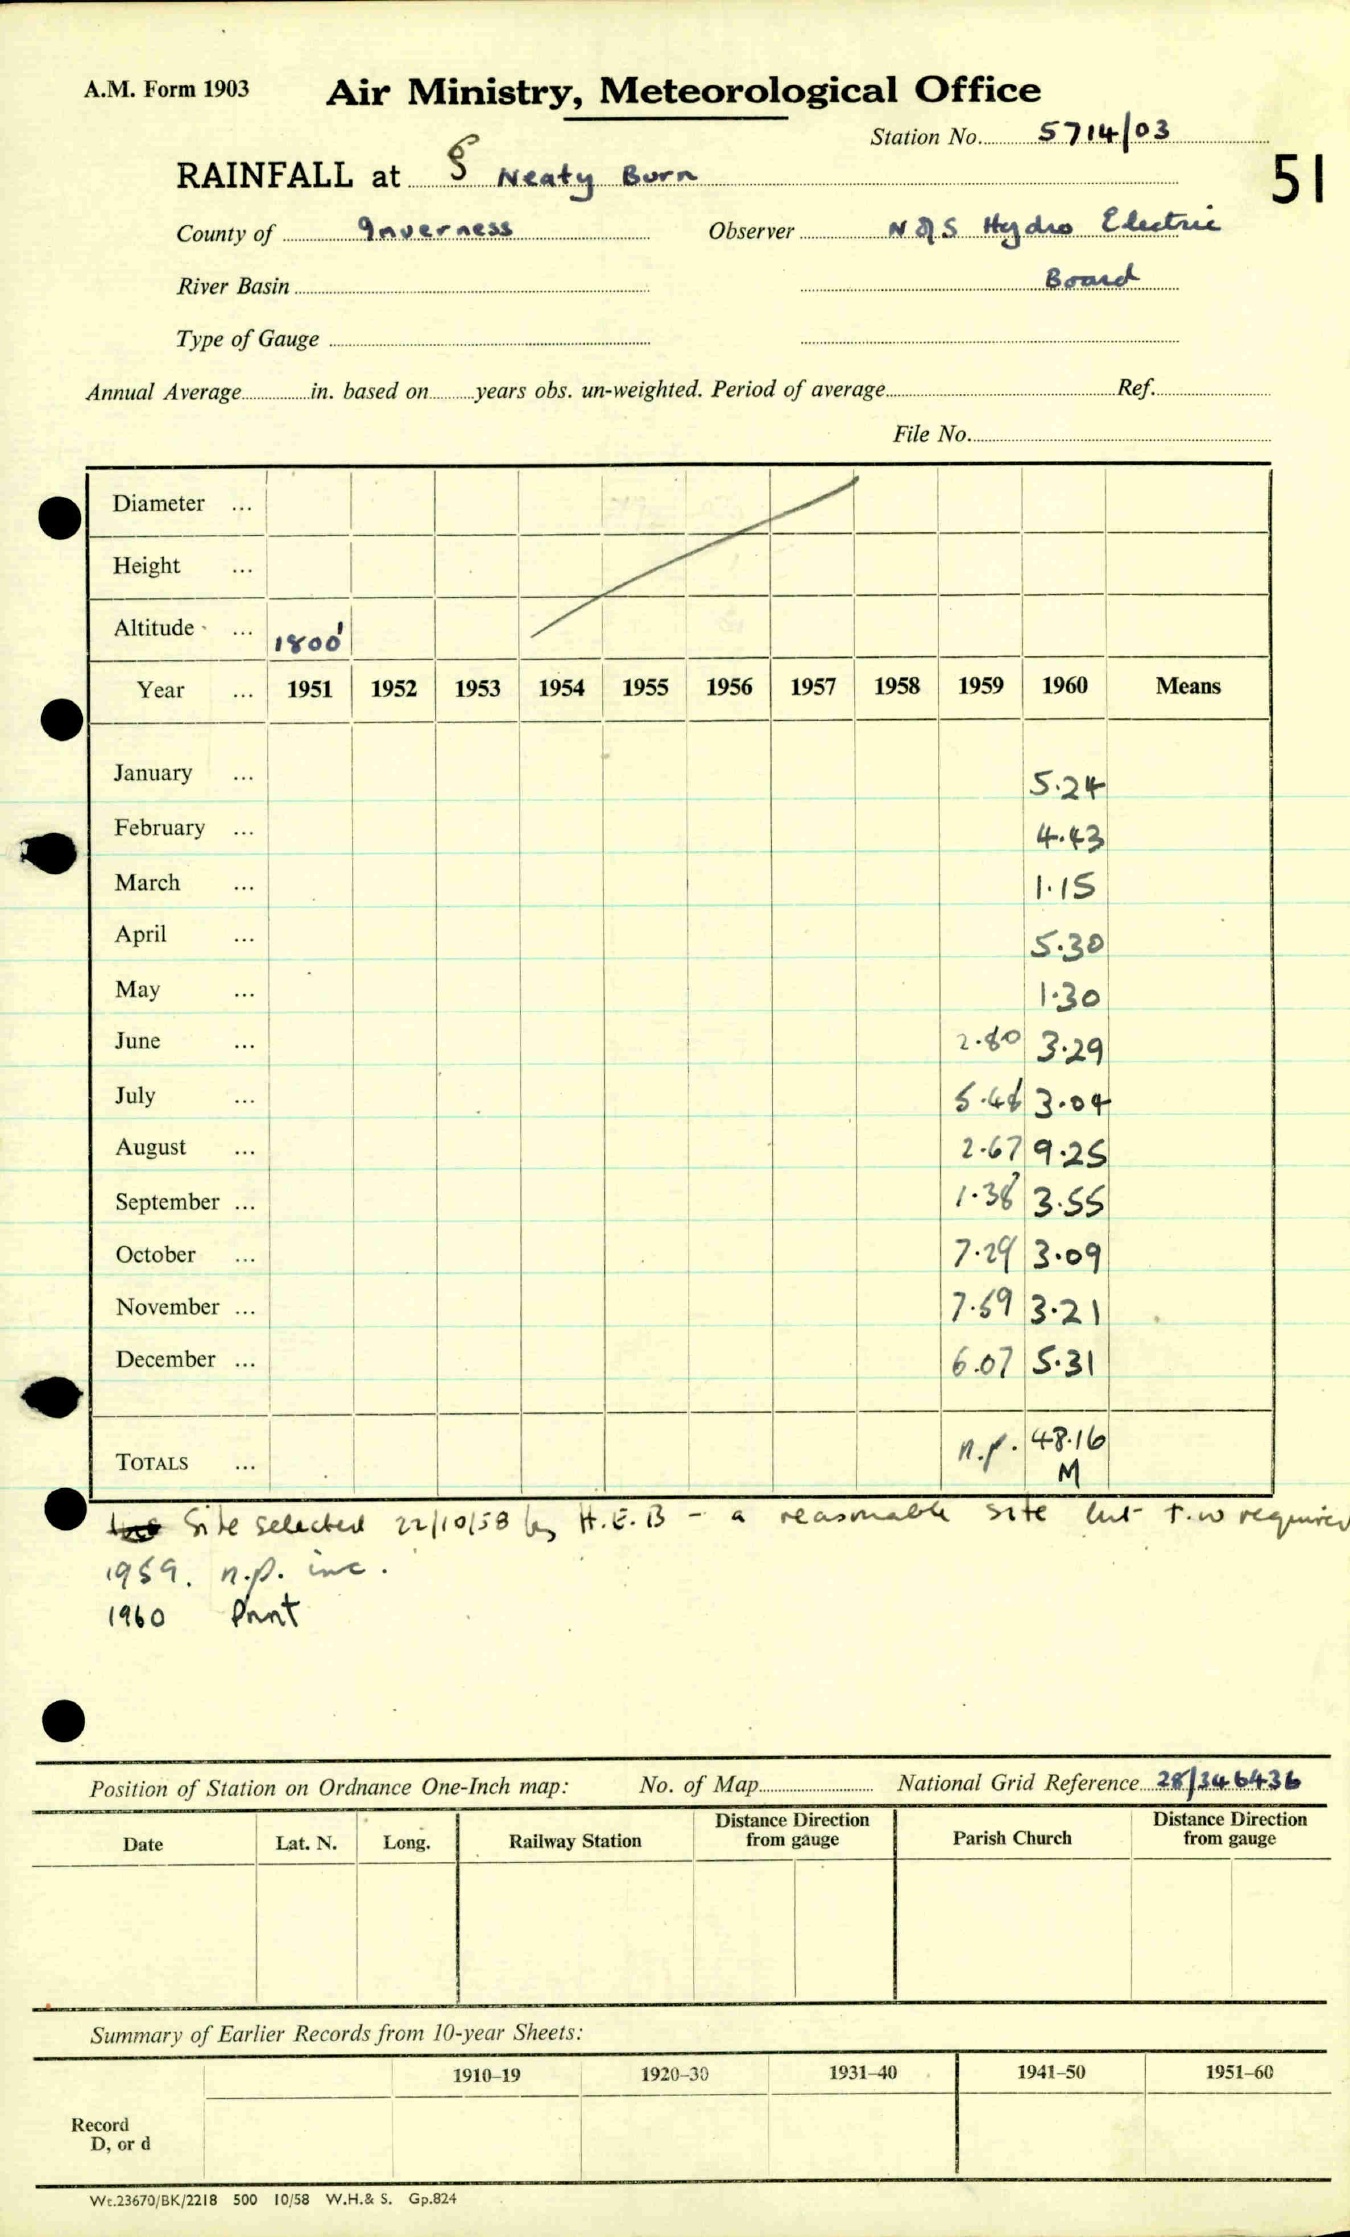 A.M. Form 1903 Air Ministry, Meteorological Office
Station No. 5714/03
51
RAINFALL at Neaty Burn
County of Inverness Observer N of S Hydro Electric
River Basin Board
Type of Gauge
Annual Average in. based on years obs. un-weighted. Period of average Ref.
File No.
Diameter ...
Height ...
Altitude ... 1800'
Year ... 1951 1952 1953 1954 1955 1956 1957 1958 1959 1960 Means
January ... 5.24
February ... 4.43
March ... 1.15
April ... 5.30
May ... 1.30
June ... 2.80 3.29
July ... 5.48 3.04
August ... 2.67 9.25
September ... 1.38 3.55
October ... 7.29 3.09
November ... 7.59 3.21
December ... 6.07 5.31
TOTALS ... n.p. 48.16
M
Site selected 22/10/58 by H.E.B - a reasonable site but t.w required
1959. n.p. inc.
1960 Print
Position of Station on Ordnance One-Inch map: No. of Map National Grid Reference 28/346436
Date Lat. N. Long. Railway Station Distance Direction from gauge Parish Church Distance Direction from gauge
Summary of Earlier Records from 10-year Sheets:
1910–19 1920–30 1931–40 1941–50 1951–60
Record
D, or d
Wt.23670/BK/2218 500 10/58 W.H.& S. Gp.824